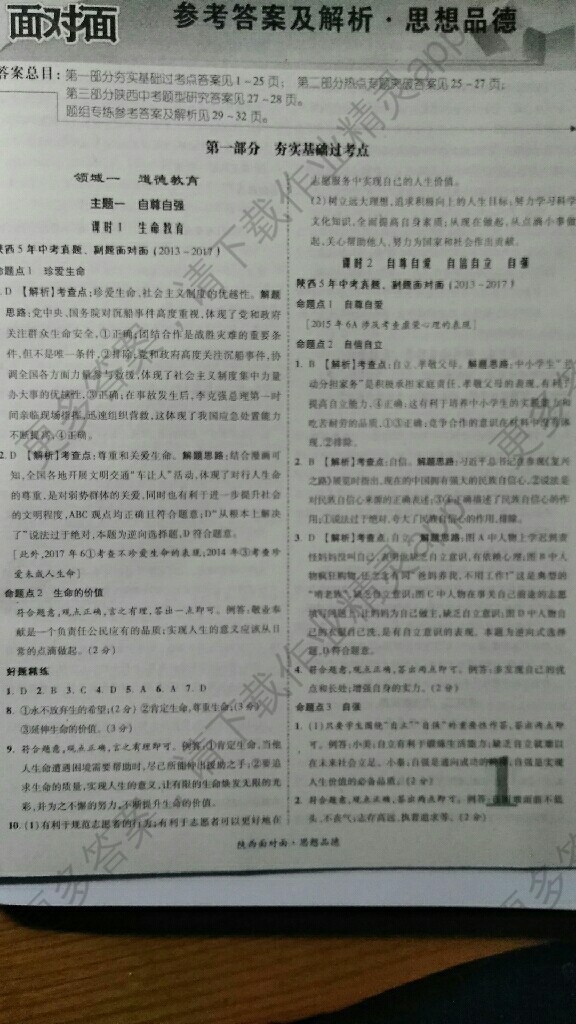 面对面
参考答案及解析·思想品德
答案总目：第一部分夯实基础过考点答案见1~25页；第二部分热点专题突破答案见25~27页；
第三部分陕西中考题型研究答案见27~28页。
题组专练参考答案及解析见29~32页。
第一部分 夯实基础过考点
领域一 道德教育
主题一 自尊自强
课时1 生命教育
陕西5年中考真题、副题面对面(2013~2017)
命题点1 珍爱生命
1. D 【解析】考查点：珍爱生命,社会主义制度的优越性。解题
思路：党中央,国务院对沉船事件高度重视,体现了党和政府
关注群众生命安全,①正确;团结合作是战胜灾难的重要条
件,但不是唯一条件,②排除;党和政府高度关注沉船事件,协
调全国各方面力量参与救援,体现了社会主义制度集中力量
办大事的优越性,③正确;在事故发生后,李克强总理第一时
间亲临现场指挥,迅速组织营救,这体现了我国应急处置能力
不断提高,④正确。
2. D 【解析】考查点：尊重和关爱生命。解题思路：结合漫画可
知,全国各地开展文明交通“车让人”活动,体现了对行人生命
的尊重,是对弱势群体的关爱,同时也有利于进一步提升社会
的文明程度,ABC观点均正确且符合题意;D“从根本上解决
了”说法过于绝对,本题为逆向选择题,D符合题意。
[此外,2017年6①考查不珍爱生命的表现;2014年③考查珍
爱未成人生命]
命题点2 生命的价值
符合题意,观点正确,言之有理,答出一点即可。例答：敬业奉
献是一个负责任公民应有的品质;实现人生的意义应该从日
常的点滴做起。(2分)
好题精练
1. D 2. B 3. C 4. D 5. A 6. A 7. D
8. ①永不放弃生的希望;(2分)②肯定生命,尊重生命;(3分)
③延伸生命的价值。(3分)
9. 符合题意,观点正确,言之有理即可。例答：①肯定生命,当他
人生命遭遇困境需要帮助时,尽己所能伸出援助之手;②要追
求生命的质量,实现人生的意义,让有限的生命焕发无限的光
彩,并为之不懈的努力,不断提升生命的价值。
10. (1)有利于规范志愿者的行为;有利于志愿者可以更好地在
志愿服务中实现自己的人生价值。
(2)树立远大理想,追求积极向上的人生目标;努力学习科学
文化知识,全面提高自身素质;从现在做起,从点滴小事做
起,关心帮助他人,努力为国家和社会作出贡献。
课时2 自尊自爱 自信自立 自强
陕西5年中考真题、副题面对面(2013~2017)
命题点1 自尊自爱
[2015年6A涉及考查虚荣心理的表现]
命题点2 自信自立
1. B 【解析】考查点：自立、孝敬父母。解题思路：中小学生“
动分担家务”是积极承担家庭责任、孝敬父母的表现,有利于
提高自立能力,④正确;这有利于培养中小学生的实践能力和
吃苦耐劳的品质,①③正确;竞争合作的意识在材料中没有体
现,②排除。
2. B 【解析】考查点：自信。解题思路：习近平总书记在参观《复兴
之路》展览时指出,现在的中国拥有强大的民族自信心,②说法是
对民族自信心来源的正确表述;③④正确描述了民族自信心的作
用;①说法过于绝对,夸大了民族自信心的作用,排除。
3. D 【解析】考查点：自立。解题思路：图A中人物上学迟到责
怪妈妈没叫自己,表明他缺乏自立意识,有依赖心理;图B中人
物疯狂购物,
“啃老族”,缺乏自立意识;图C中人物在事关自己前途的志愿
填写问题上,让妈妈为自己做主,缺乏自立意识;图D中人物自
己的衣服自己洗,是有自立意识的表现。本题为逆向式选择
题,D符合题意。
4. 符合题意,观点正确,答出两点即可。例答：多发现自己的优
点和长处;增强自身的实力。(2分)
命题点3 自强
1. (1)只要学生围绕“自立”“自强”的重要性作答,答出两点即
可。例答：小美：自立有利于锻炼生活能力;缺乏自立就难以
在未来社会立足。小秦：自强是通向成功的阶梯;自强是实现
人生价值的必备品质。(2分)
2. 符合题意,观点正确,答出两点即可。例答：在困难面前不低
头、不丧气;志存高远、执着追求等。(2分)
1
陕西面对面·思想品德
更多答案，请下载作业精灵app